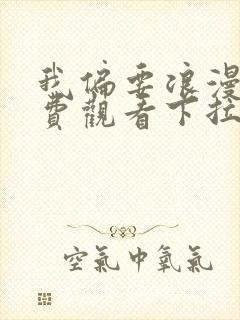 我偏要浪漫
费觀看下拉
空氣中氧氣